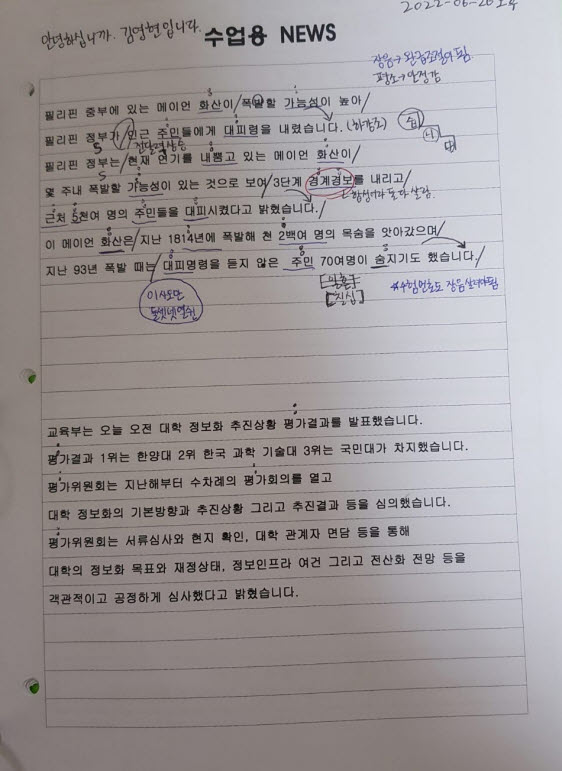 안녕하십니까. 김영현입니다.
수업용 NEWS
장음→완급조절이 됨
평조→안정감
필리핀 중부에 있는 메이언 화산이/폭발할 가능성이 높아/
필리핀 정부가/인근 주민들에게 대피령을 내렸습니다.
(하강조)
니
다
전달력 상승
필리핀 정부는/현재 연기를 내뿜고 있는 메이언 화산이/
몇 주내 폭발할 가능성이 있는 것으로 보여/3단계 경계경보를 내리고/
근처 5천여 명의 주민들을 대피시켰다고 밝혔습니다./
이 메이언 화산은/지난 1814년에 폭발해 천 2백여 명의 목숨을 앗아갔으며/
지난 93년 폭발 때는/대피명령을 듣지 않은 주민 70여명이 숨지기도 했습니다./
[일흔]
[칠십]
이사오만
둘셋넷열쉰
교육부는 오늘 오전 대학 정보화 추진상황 평가결과를 발표했습니다.
평가결과 1위는 한양대 2위 한국 과학 기술대 3위는 국민대가 차지했습니다.
평가위원회는 지난해부터 수차례의 평가회의를 열고
대학 정보화의 기본방향과 추진상황 그리고 추진결과 등을 심의했습니다.
평가위원회는 서류심사와 현지 확인, 대학 관계자 면담 등을 통해
대학의 정보화 목표와 재정상태, 정보인프라 여건 그리고 전산화 전망 등을
객관적이고 공정하게 심사했다고 밝혔습니다.